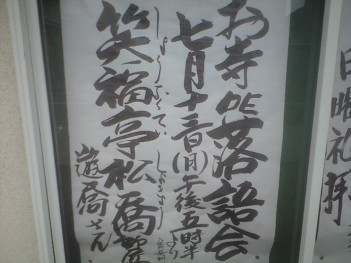 お寺DE落語会
七月十三日(月)午後五時半より
しょうふくてい しょきょう
笑福亭松喬
遊喬さん
日曜礼拝